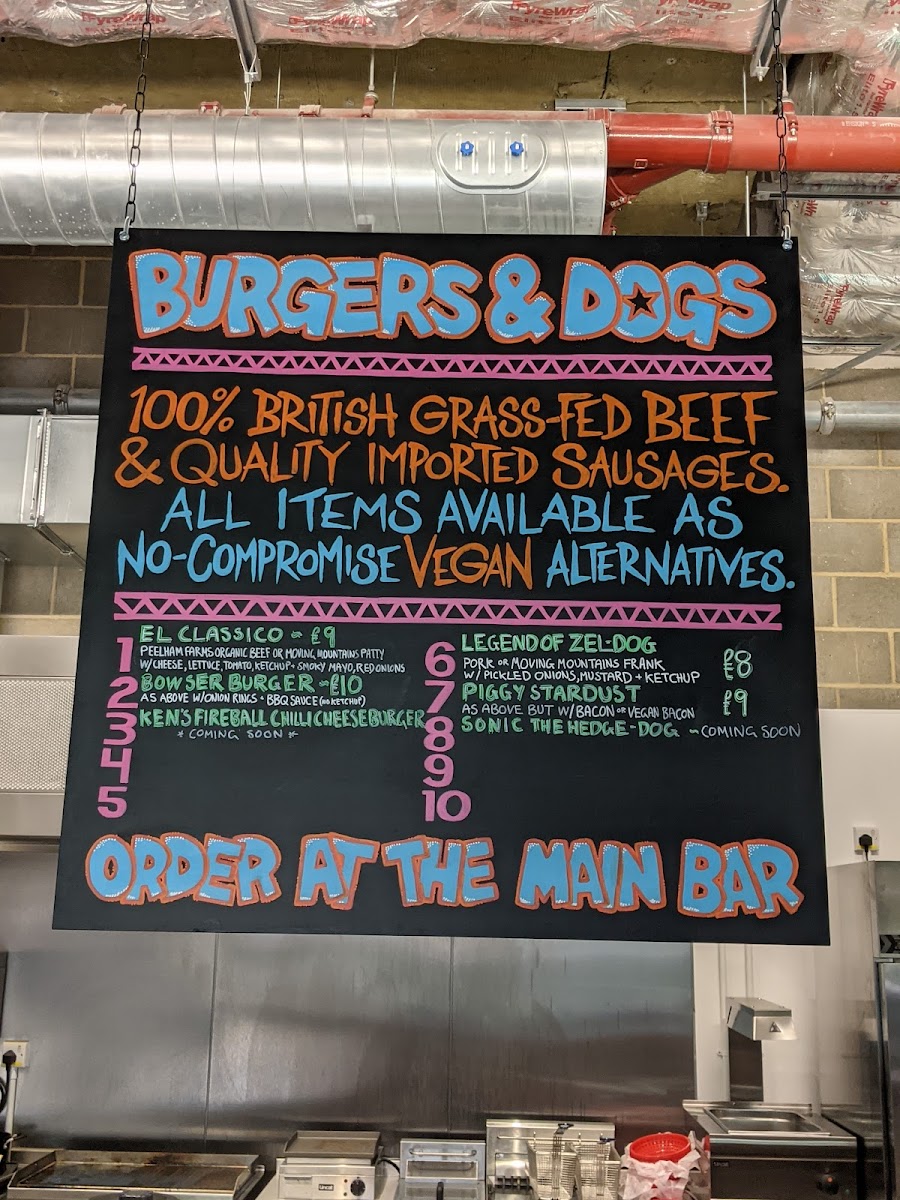 FyreWrap
FyreWrap
FyreWrap
BURGERS & DOGS
100% BRITISH GRASS-FED BEEF
& QUALITY IMPORTED SAUSAGES.
ALL ITEMS AVAILABLE AS
NO-COMPROMISE VEGAN ALTERNATIVES.
1 EL CLASSICO - £9
PEELHAM FARMS ORGANIC BEEF OR MOVING MOUNTAINS PATTY
W/ CHEESE, LETTUCE, TOMATO, KETCHUP + SMOKY MAYO, RED ONIONS
2 BOWSER BURGER - £10
AS ABOVE W/ ONION RINGS + BBQ SAUCE (NO KETCHUP)
3 KEN'S FIREBALL CHILLI CHEESEBURGER
* COMING SOON *
4
5
6 LEGEND OF ZEL-DOG £8
PORK OR MOVING MOUNTAINS FRANK
W/ PICKLED ONIONS, MUSTARD + KETCHUP
7 PIGGY STARDUST £9
AS ABOVE BUT W/ BACON OR VEGAN BACON
8 SONIC THE HEDGE-DOG - COMING SOON
9
10
ORDER AT THE MAIN BAR
Lincat